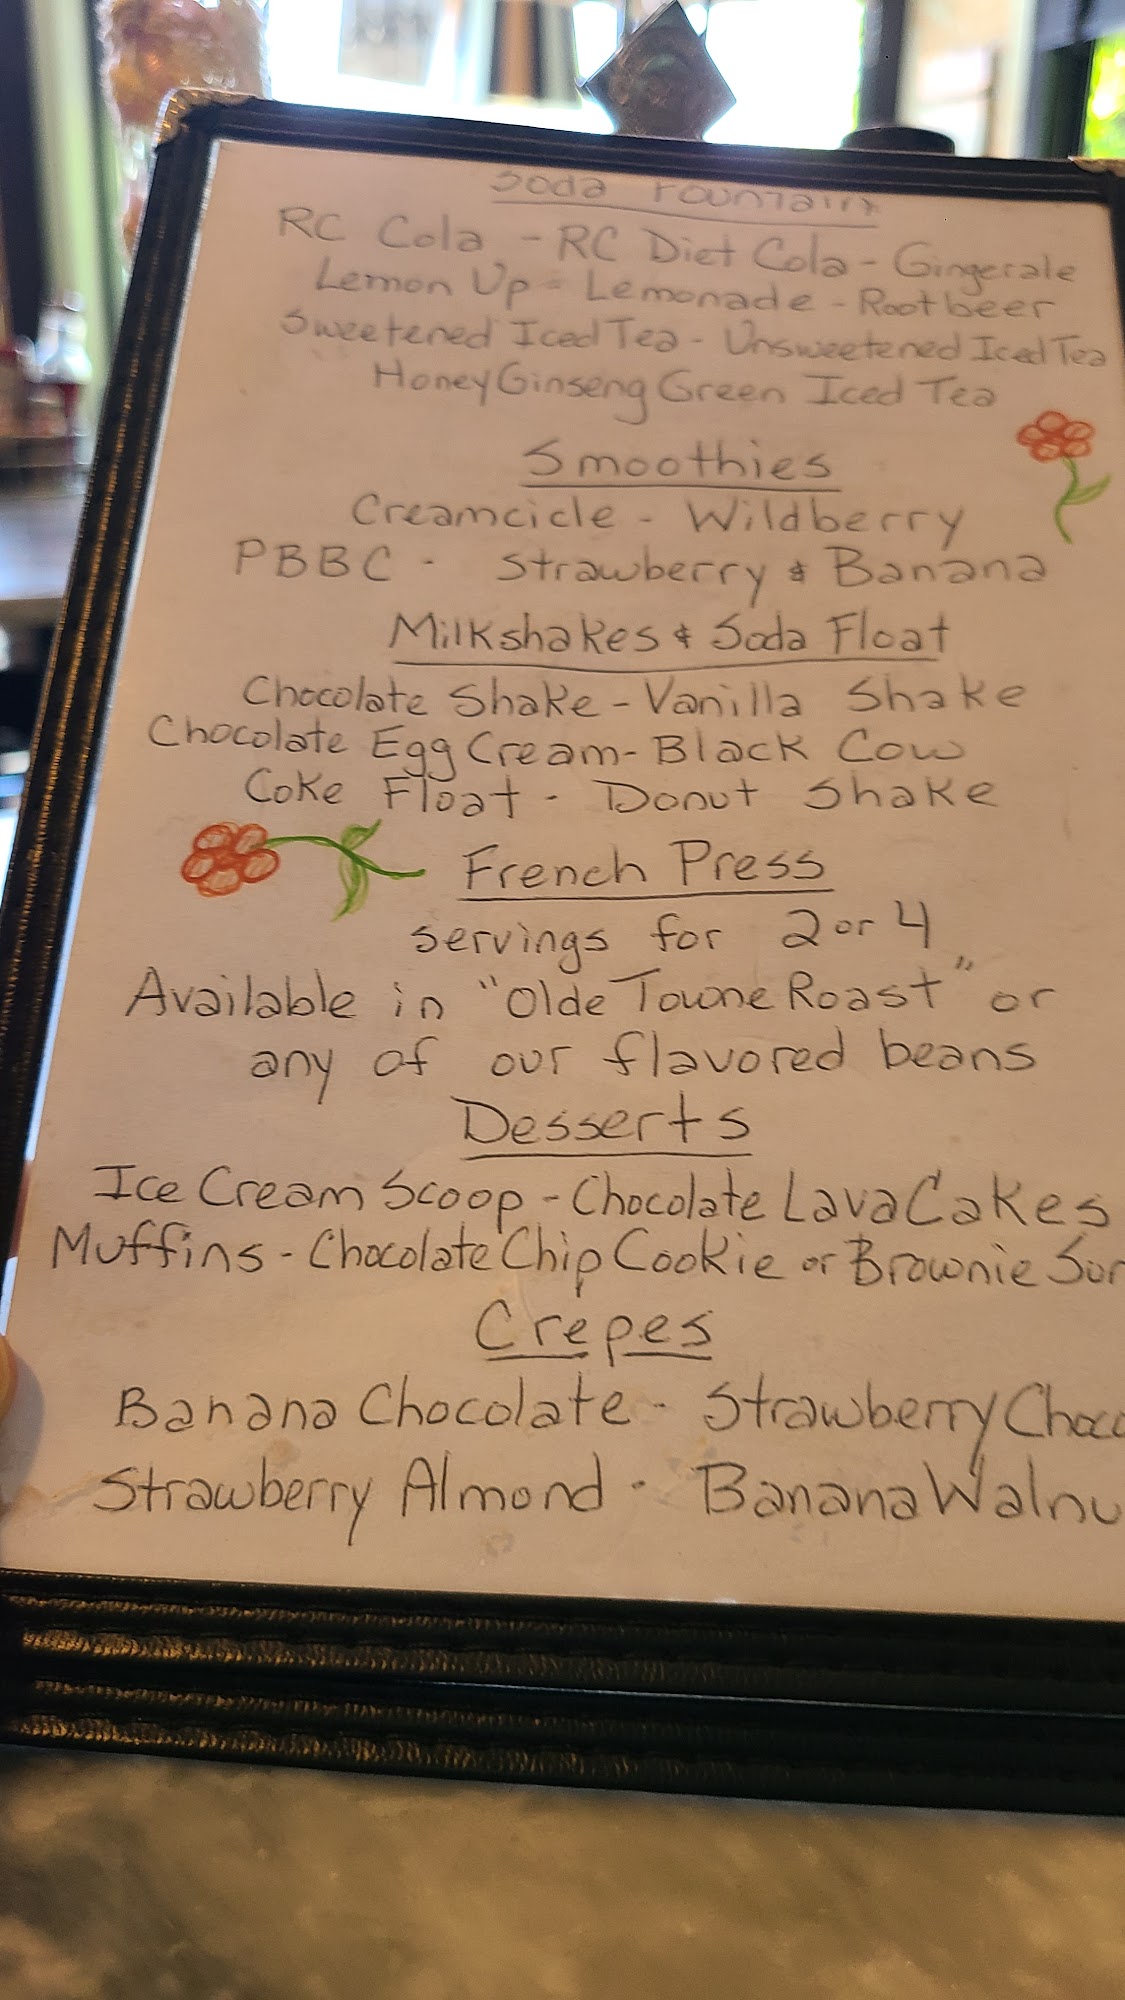 Soda Fountain
RC Cola - RC Diet Cola - Gingerale
Lemon Up - Lemonade - Rootbeer
Sweetened Iced Tea - Unsweetened Iced Tea
Honey Ginseng Green Iced Tea
Smoothies
Creamcicle - Wildberry
PBBC - Strawberry & Banana
Milkshakes & Soda Float
Chocolate Shake - Vanilla Shake
Chocolate Egg Cream - Black Cow
Coke Float - Donut Shake
French Press
servings for 2 or 4
Available in "Olde Towne Roast" or
any of our flavored beans
Desserts
Ice Cream Scoop - Chocolate Lava Cakes
Muffins - Chocolate Chip Cookie or Brownie
Crepes
Banana Chocolate - Strawberry
Strawberry Almond - Banana